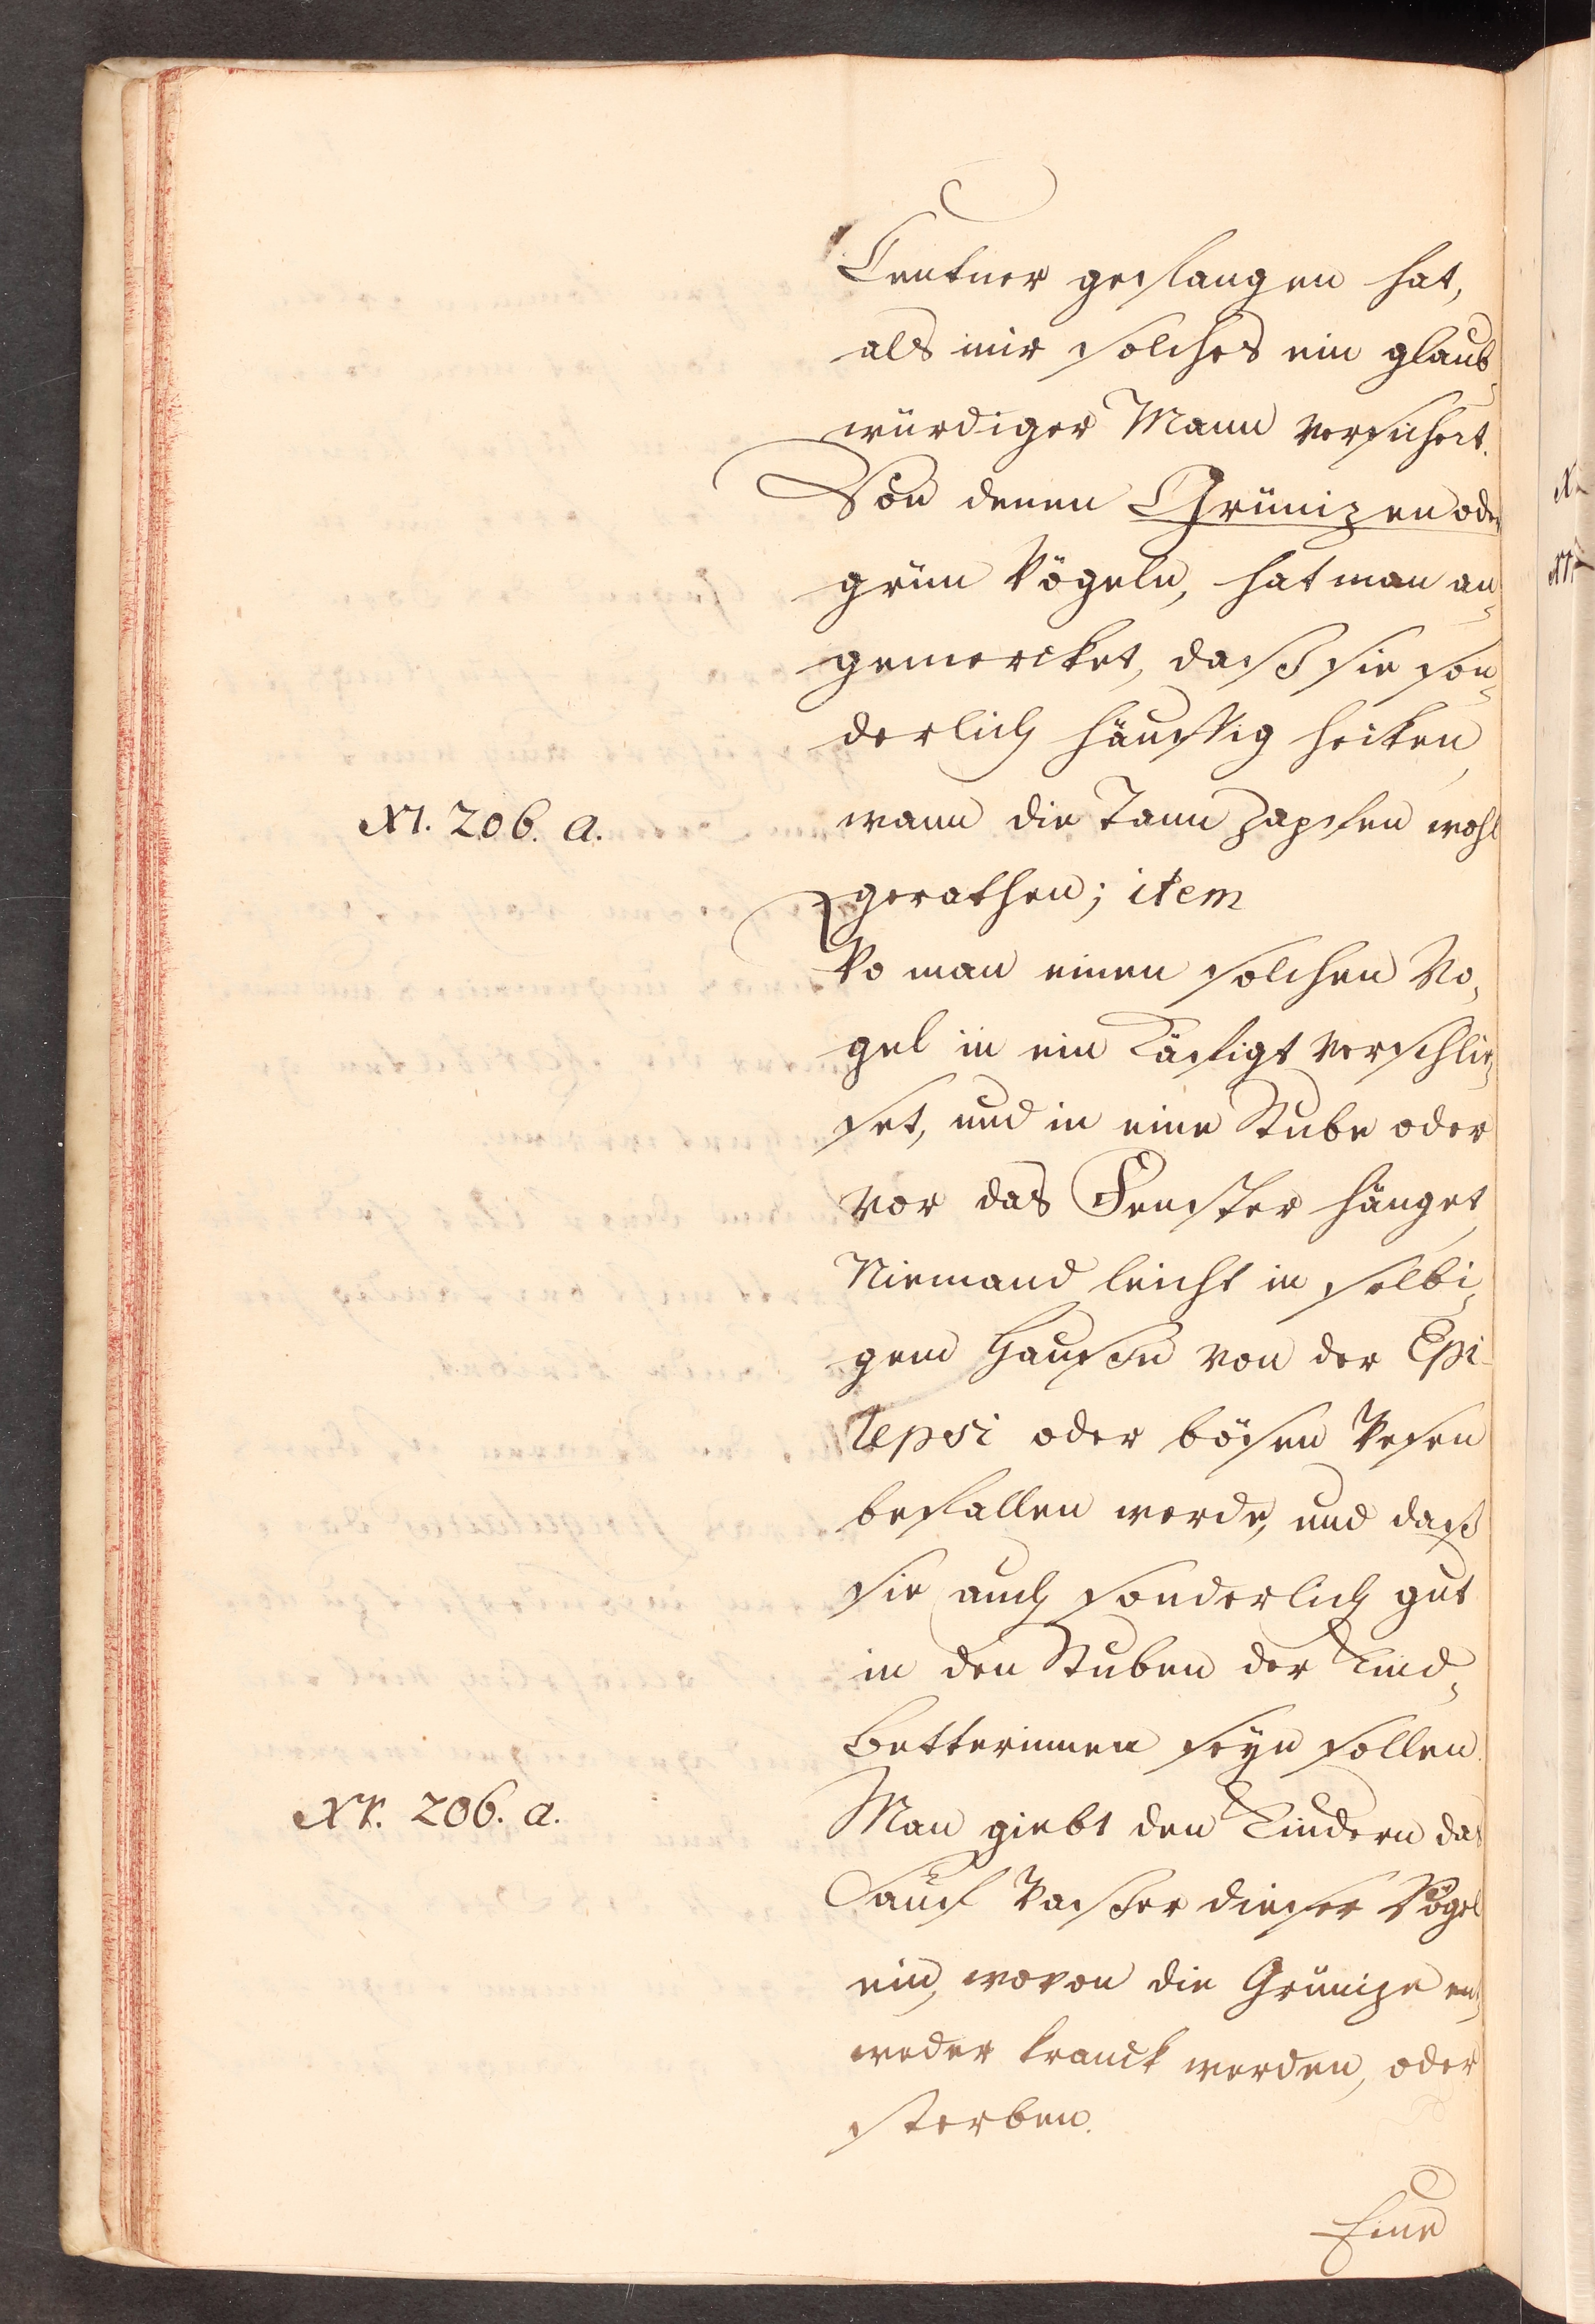 Centner gefangen hat,
als mir solches ein glaub-
würdiger Mann versichert.
Von denen Grünizen oder
grün Vögeln, hat man an-
gemercket, daß sie son-
derlich häuffig hecken,
N. 206. a.
wann die Tann Zapfen wohl
gerathen; item
Wo man einen solchen Vo-
gel in ein Käfigt verschlie-
set, und in eine Stube oder
vor das Fenster hänget,
Niemand leicht in selbi-
gem Hause von der Epi-
lepsi oder bösen Wesen
befallen werde, und daß
sie auch sonderlich gut
in den Stuben der Kind-
betterinnen seyn sollen.
Nr. 206. a.
Man giebt den Kindern das
Sauf Wasser dieser Vögel
ein, wovon die Grünize ent-
weder kranck werden, oder
sterben.
Eine